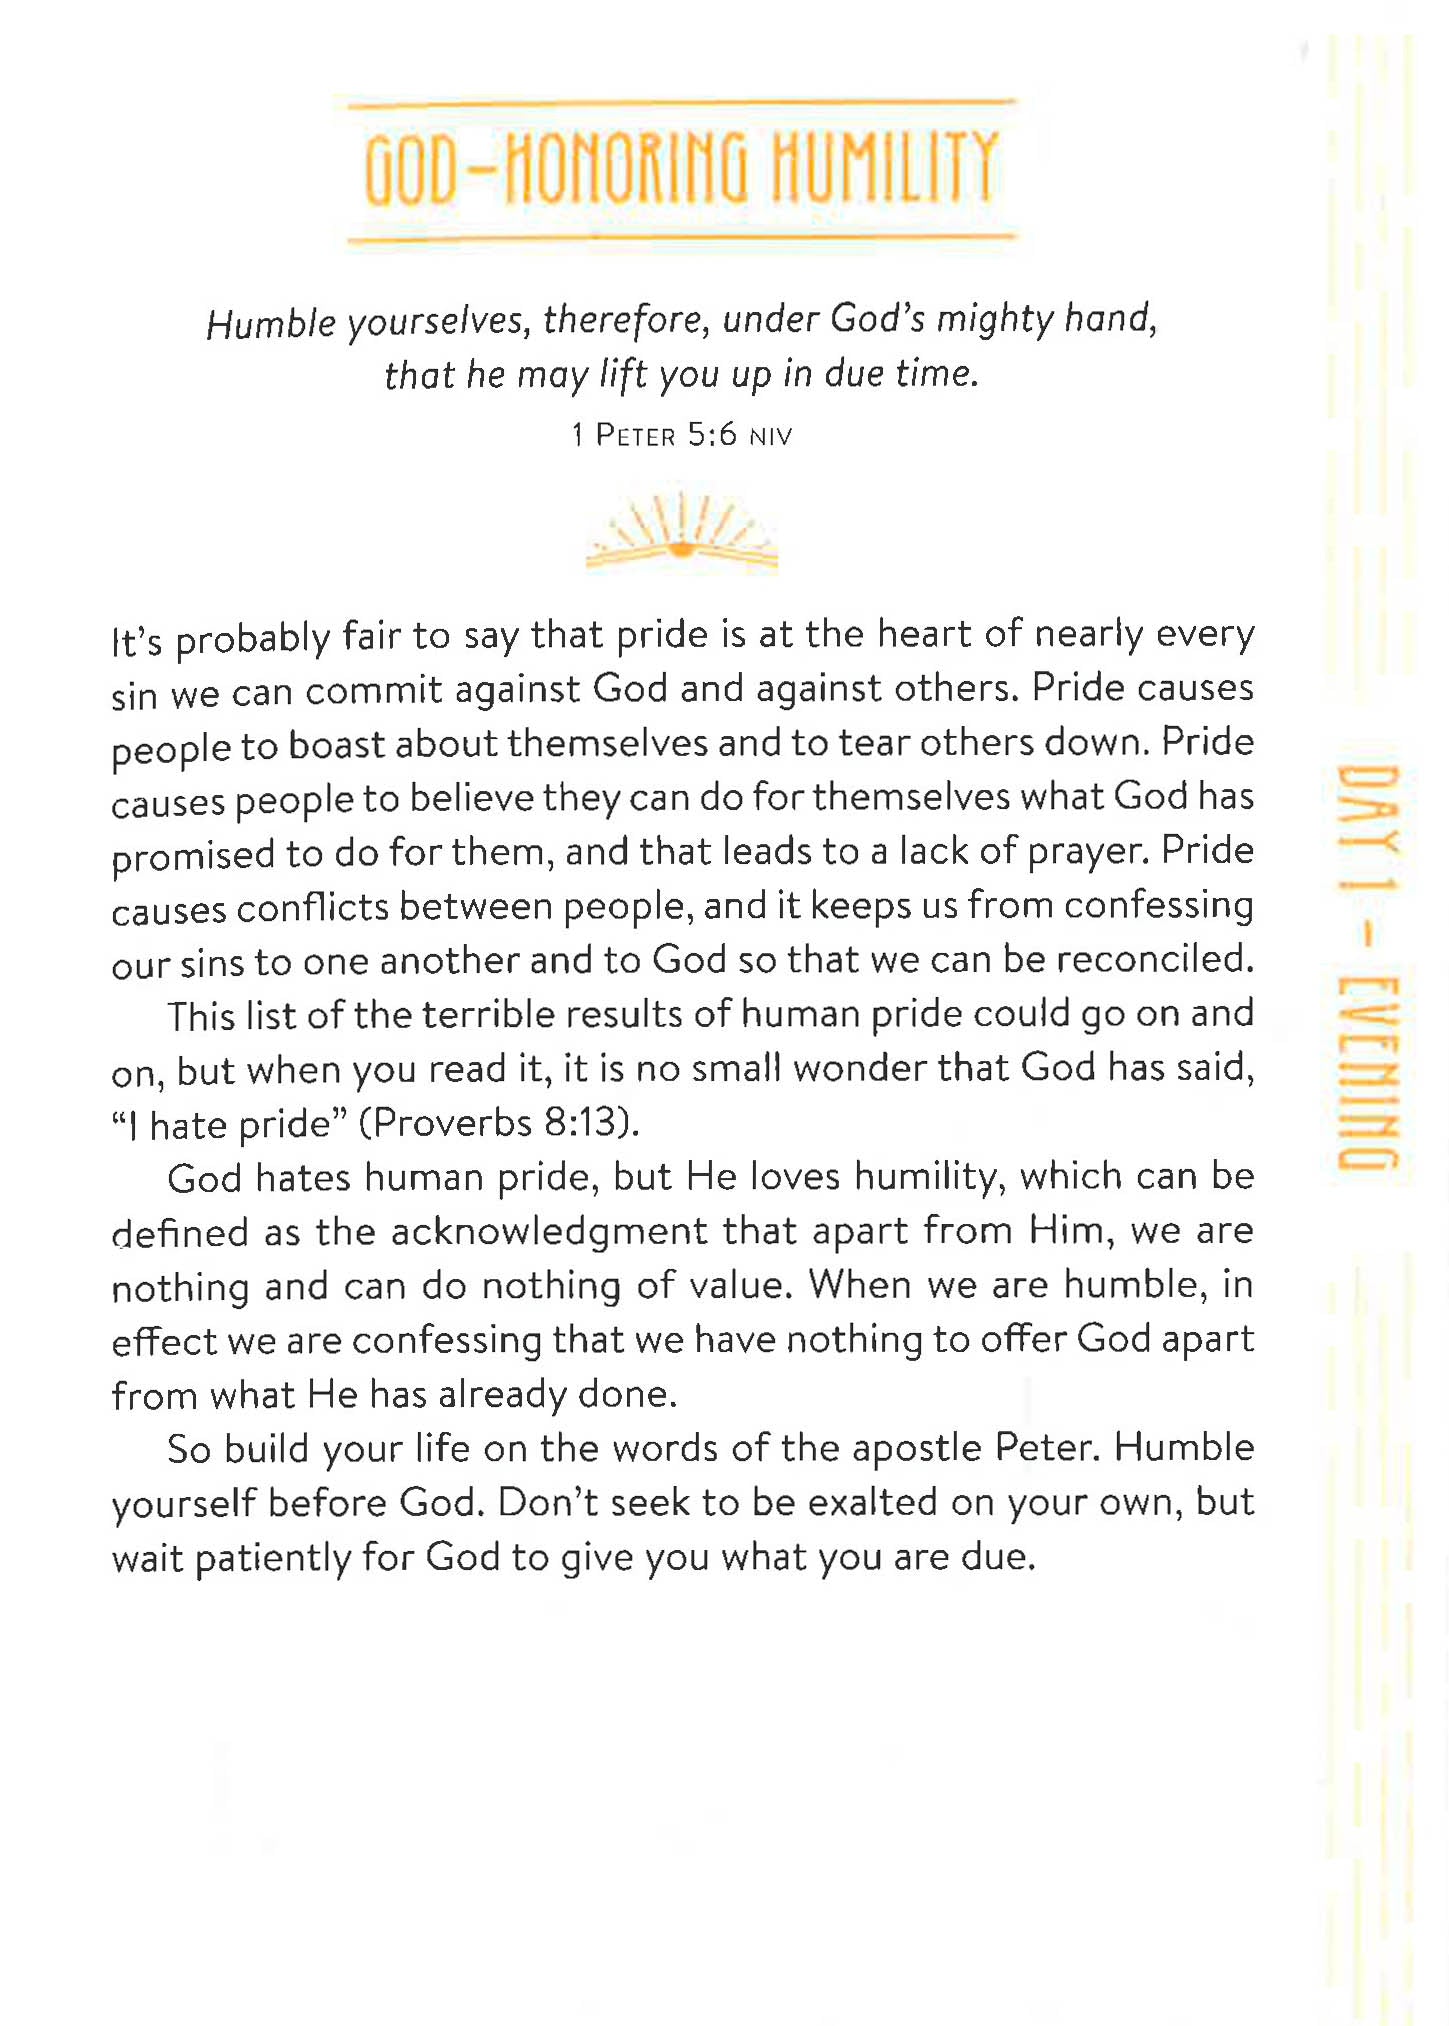 GOD-HONORING HUMILITY
Humble yourselves, therefore, under God's mighty hand,
that he may lift you up in due time.
1 PETER 5:6 NIV
It's probably fair to say that pride is at the heart of nearly every
sin we can commit against God and against others. Pride causes
people to boast about themselves and to tear others down. Pride
causes people to believe they can do for themselves what God has
promised to do for them, and that leads to a lack of prayer. Pride
causes conflicts between people, and it keeps us from confessing
our sins to one another and to God so that we can be reconciled.
This list of the terrible results of human pride could go on and
on, but when you read it, it is no small wonder that God has said,
“I hate pride” (Proverbs 8:13).
God hates human pride, but He loves humility, which can be
defined as the acknowledgment that apart from Him, we are
nothing and can do nothing of value. When we are humble, in
effect we are confessing that we have nothing to offer God apart
from what He has already done.
So build your life on the words of the apostle Peter. Humble
yourself before God. Don't seek to be exalted on your own, but
wait patiently for God to give you what you are due.
DAY 1 - EVENING